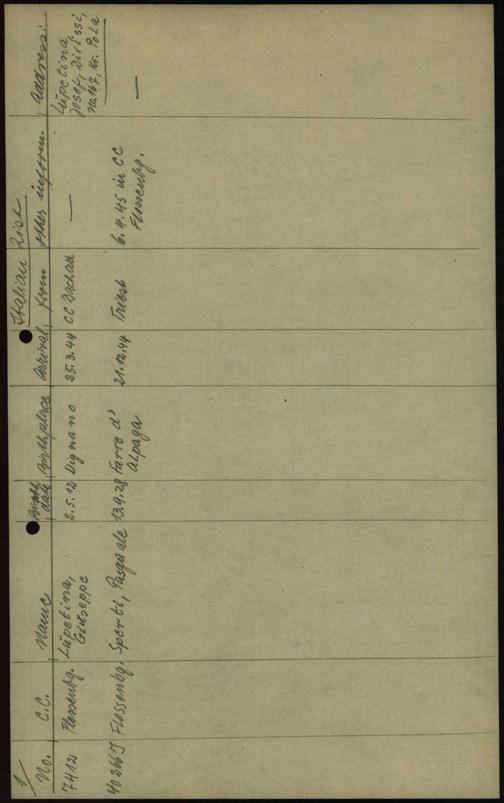 1/
Italian List
No. C.C. Name Birth date Birthplace Arrival from other inform. Address:
7412 Flossenbg. Lupetina, Giuseppe 2.5.12 Dignano 25.3.44 CC Dachau — Lupetina, Josef, Dirissi, na 167, Kr. Pola
40266 J Flossenbg. Sperti, Pasquale 13.9.28 Farra d' Alpago 21.12.44 Triest 6.4.45 in CC Flossenbg. —